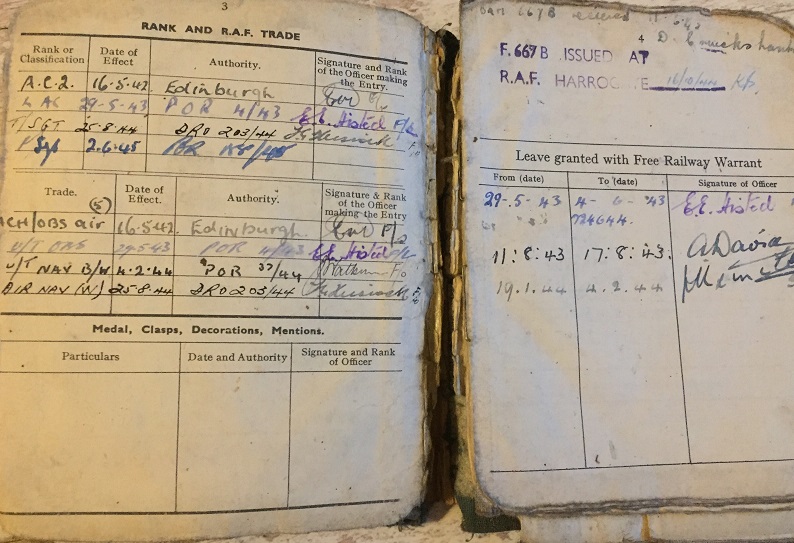 3
RANK AND R.A.F. TRADE
Rank or Classification Date of Effect Authority. Signature and Rank of the Officer making the Entry.
A.C.2. 16-5-42 Edinburgh
LAC 29-5-43 POR 4/43 E.E. Histed F/L
T/SGT 25-8-44 DRO 203/44
F/Sgt 2.6.45 POR
Trade. Date of Effect. Authority. Signature & Rank of the Officer making the Entry
(5)
ACH/OBS air 16-5-42 Edinburgh.
U/T OBS 29-5-43 POR 4/43 E.E. Histed F/L
U/T NAV B/W 4-2-44 POR 37/44 F/O
AIR NAV (W) 25-8-44 DRO 203/44
Medal, Clasps, Decorations, Mentions.
Particulars Date and Authority Signature and Rank of Officer
667B
4
F.667B ISSUED AT
R.A.F. HARROG TE 16/10/44
Leave granted with Free Railway Warrant
From (date) To (date) Signature of Officer
29-5-43 4-6-43 E.E. Histed
724644.
11:8:43 17:8:43. A Davies
19.1.44 4.2.44